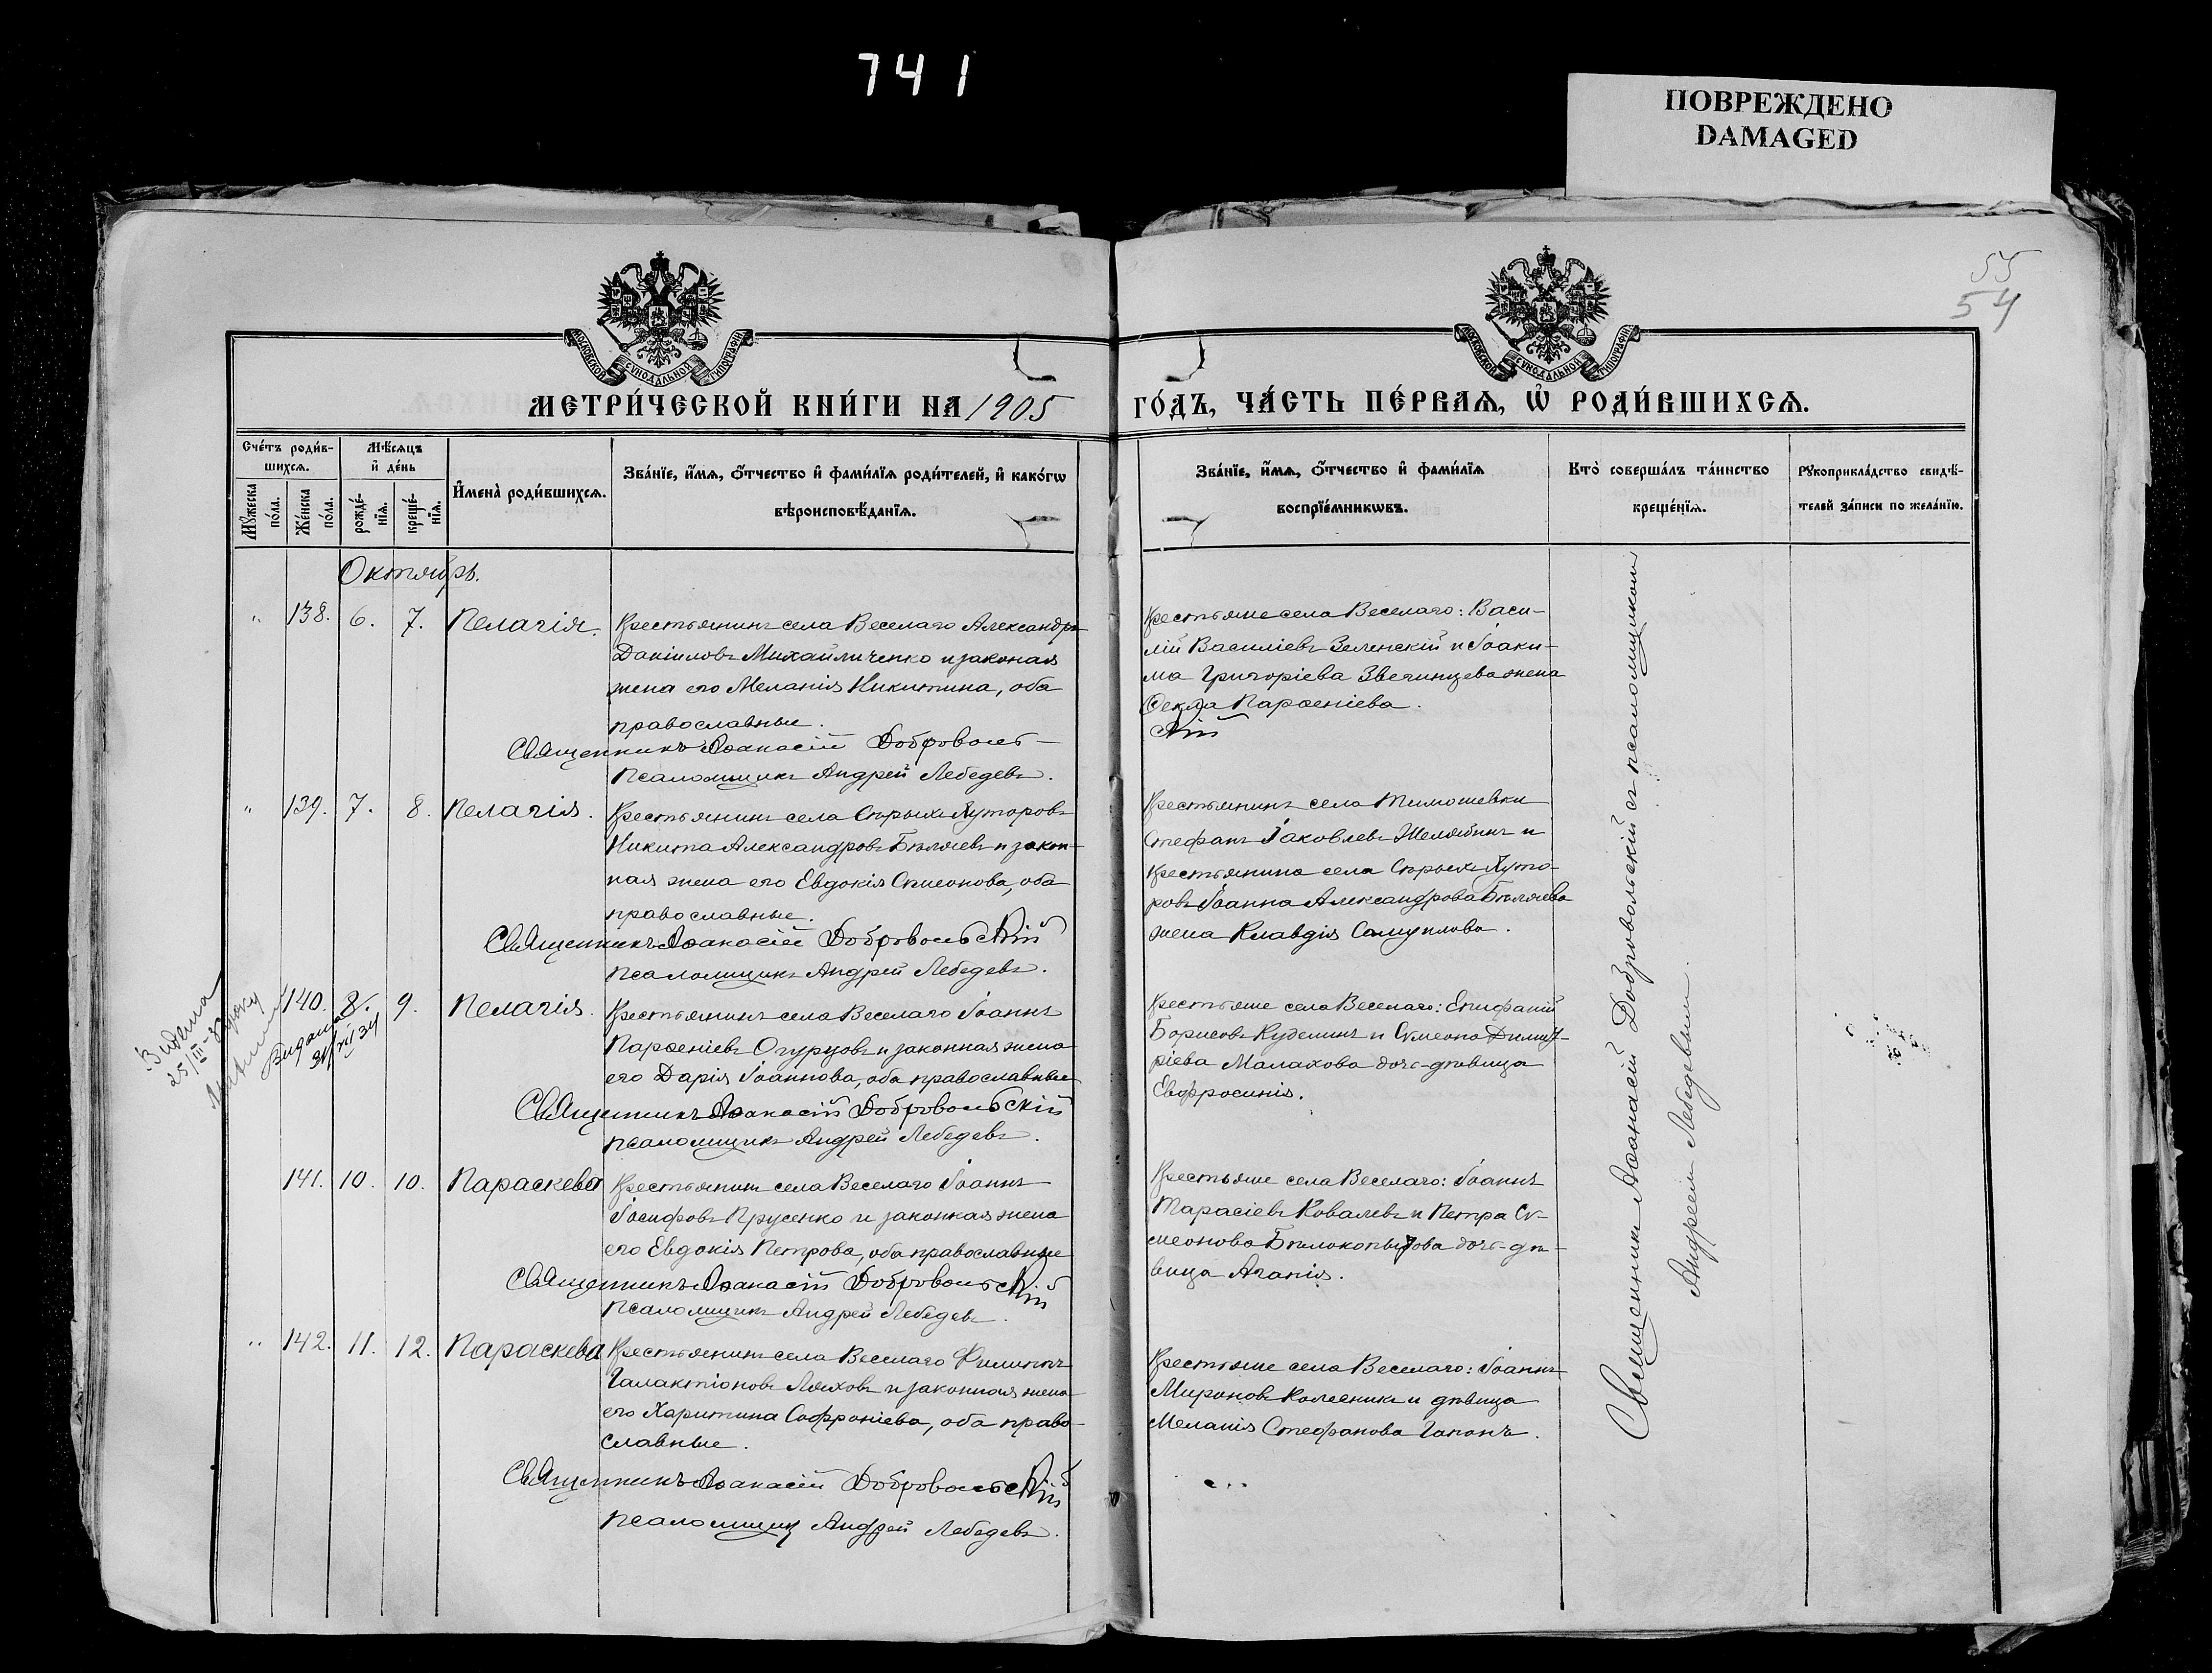 741
ПОВРЕЖДЕНО
DAMAGED
55
54
МОСКОВСКОЙ СѴНОДАЛЬНОЙ ТИПОГРАФІИ
МОСКОВСКОЙ СѴНОДАЛЬНОЙ ТИПОГРАФІИ
МЕТРИ́ЧЕСКОЙ КНИ́ГИ НА 1905
ГО́ДЪ, ЧА́СТЬ ПЕ́РВАѦ, Ѡ҆ РОДИ́ВШИХСѦ.
Сче́тъ роди́в-
шихсѧ.
Мѣ́сѧцъ
и҆ де́нь
Мꙋ́жеска
по́ла.
Же́нска
по́ла.
рожде́-
нїѧ.
креще́-
нїѧ.
И҆мена̀ роди́вшихсѧ.
Зва́нїе, и҆́мѧ, ѻ҆́тчество и҆ фами́лїѧ роди́телей, и҆ како́гѡ
вѣроисповѣ́данїѧ.
Зва́нїе, и҆́мѧ, ѻ҆́тчество и҆ фами́лїѧ
воспрїе́мникѡвъ.
Кто̀ соверша́лъ та́инство
креще́нїѧ.
Рꙋкоприкла́дство свидѣ́-
телей за́писи по жела́нїю.
Октябрь.
" 138. 6. 7. Пелагія.
Крестьянинъ села Веселаго Александръ
Даніиловъ Михайличенко и законая
жена его Меланія Никитина, оба
православные.
Священникъ Аѳанасій Доброволь-
скій
Псаломщикъ Андрей Лебедевъ.
Крестьяне села Веселаго: Васи-
лій Василіевъ Зеленскій и Іоаки-
ма Григоріева Звегинцева жена
Ѳекла Парѳеніева.
" 139. 7. 8. Пелагія.
Крестьянинъ села Сѣрыхъ Хуторовъ
Никита Александровъ Бѣляевъ и закон-
ная жена его Евдокія Сѵмеонова, оба
православные.
Священникъ Аѳанасій Добровольскій
Псаломщикъ Андрей Лебедевъ.
Крестьянинъ села Тимошевки
Стефанъ Іаковлевъ Желябинъ и
крестьянина села Сѣрыхъ Хуто-
ровъ Іоанна Александрова Бѣляева
жена Клавдія Самуилова.
140. 8. 9. Пелагія.
Видана
31/XII 34
25/III
Крестьянинъ села Веселаго Іоаннъ
Парѳеніевъ Огурцовъ и законная жена
его Дарія Іоаннова, оба православные
Священникъ Аѳанасій Добровольскій
Псаломщикъ Андрей Лебедевъ.
Крестьяне села Веселаго: Епифаній
Борисовъ Куделинъ и Сѵмеона Димит-
ріева Малахова дочь-дѣвица
Евфросинія.
141. 10. 10. Параскева
Крестьянинъ села Веселаго Іоаннъ
Іосифовъ Прусенко и законная жена
его Евдокія Петрова, оба православные
Священникъ Аѳанасій Добровольскій
Псаломщикъ Андрей Лебедевъ.
Крестьяне села Веселаго: Іоаннъ
Тарасіевъ Ковалевъ и Петра Сѵ-
меонова Бѣлокопытова дочь-дѣ-
вица Агапія.
" 142. 11. 12. Параскева
Крестьянинъ села Веселаго Филиппъ
Галактіоновъ Ляховъ и законная жена
его Харитина Софроніева, оба право-
славные.
Священникъ Аѳанасій Добровольскій
Псаломщикъ Андрей Лебедевъ.
Крестьяне села Веселаго: Іоаннъ
Мироновъ Колесникъ и дѣвица
Меланія Стефанова Гапонъ.
Священникъ Аѳанасій Добровольскій съ псаломщикомъ
Андреемъ Лебедевымъ.